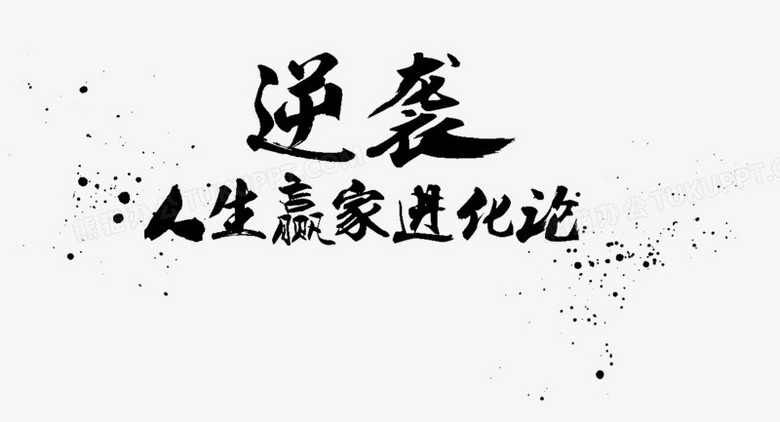 逆袭
人生赢家进化论
熊猫办公 TUKUPPT.COM
熊猫办公 TUKUPPT.COM